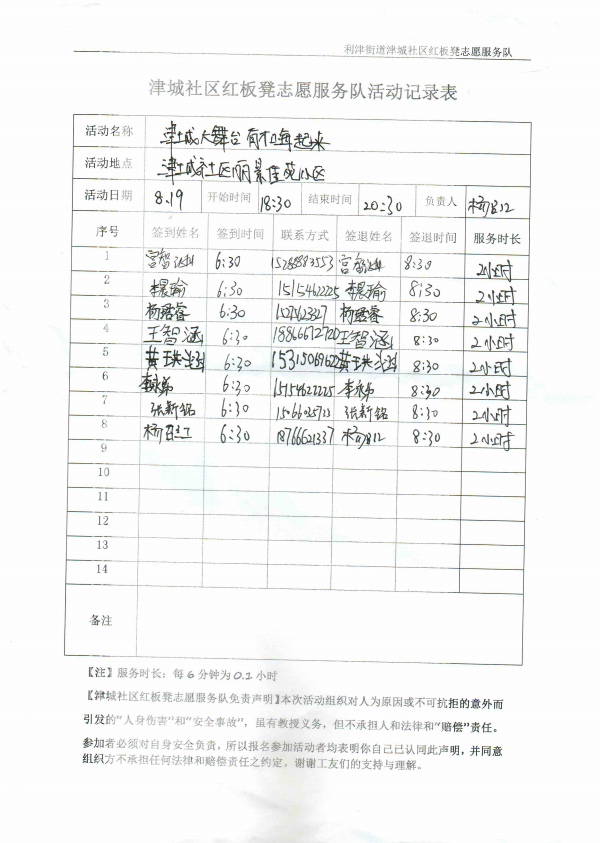 利津街道津城社区红板凳志愿服务队
津城社区红板凳志愿服务队活动记录表
活动名称 津城大舞台 有才每起来
活动地点 津城社区丽景佳苑小区
活动日期 8.19 开始时间 18:30 结束时间 20:30 负责人
序号 签到姓名 签到时间 联系方式 签退姓名 签退时间 服务时长
1 6:30 8:30 2小时
2 6:30 15154622225 8:30 2小时
3 6:30 8:30 2小时
4 王智涵 6:30 18866672720 王智涵 8:30 2小时
5 6:30 15315069622 8:30 2小时
6 6:30 15154622225 8:30 2小时
7 张新铭 6:30 张新铭 8:30 2小时
8 6:30 18766621337 8:30 2小时
9
10
11
12
13
14
备注
【注】服务时长：每6分钟为0.1小时
【津城社区红板凳志愿服务队免责声明】本次活动组织对人为原因或不可抗拒的意外而
引发的“人身伤害”和“安全事故”，虽有教授义务，但不承担人和法律和“赔偿”责任。
参加者必须对自身安全负责，所以报名参加活动者均表明你自己已认同此声明，并同意
组织方不承担任何法律和赔偿责任之约定。谢谢工友们的支持与理解。